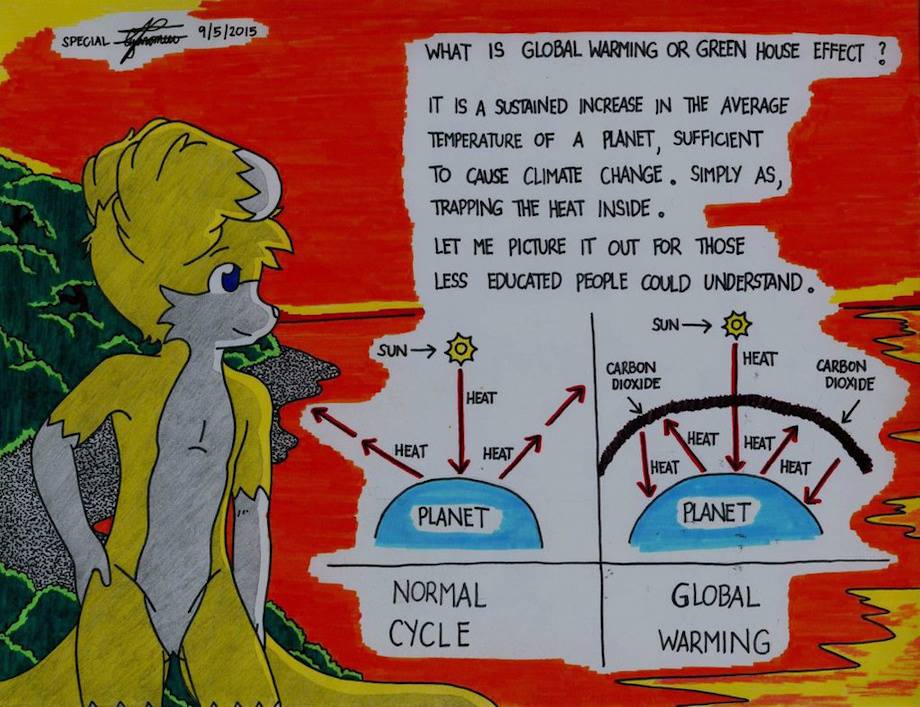 SPECIAL 9/5/2015
WHAT IS GLOBAL WARMING OR GREEN HOUSE EFFECT ?
IT IS A SUSTAINED INCREASE IN THE AVERAGE
TEMPERATURE OF A PLANET, SUFFICIENT
TO CAUSE CLIMATE CHANGE. SIMPLY AS,
TRAPPING THE HEAT INSIDE.
LET ME PICTURE IT OUT FOR THOSE
LESS EDUCATED PEOPLE COULD UNDERSTAND.
SUN
HEAT
HEAT
HEAT
PLANET
NORMAL
CYCLE
SUN
HEAT
CARBON
DIOXIDE
CARBON
DIOXIDE
HEAT
HEAT
HEAT
HEAT
PLANET
GLOBAL
WARMING